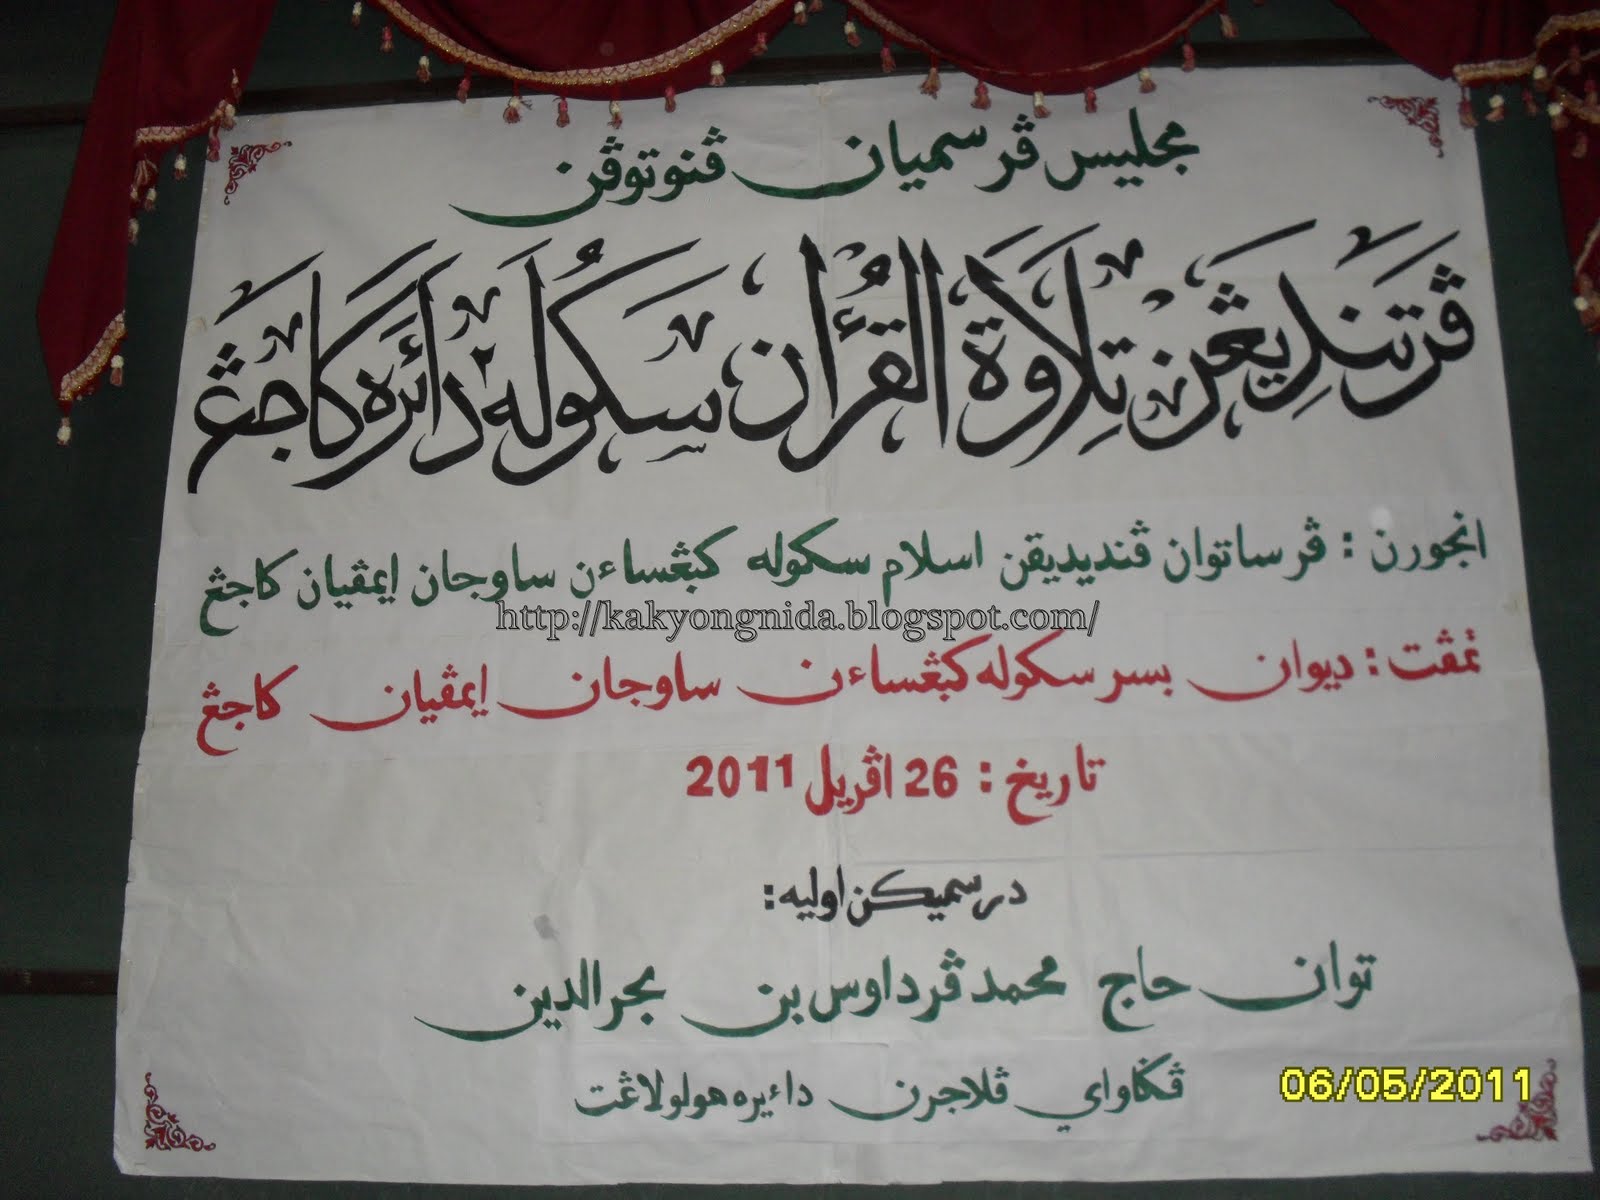 مجليس ڤرسميان ڤنوتوڤن
ڤرتنديڠن تلاوة القرءان سكوله٢ دائره كاجڠ
انجورن : ڤرساتوان ڤنديديقن اسلام سكوله كبڠساءن ساوجان ايمڤيان كاجڠ
http://kakyongnida.blogspot.com/
تمڤت : ديوان بسر سكوله كبڠساءن ساوجان ايمڤيان كاجڠ
تاريخ : 26 اڤريل 2011
درسميكن اوليه:
توان حاج محمد ڤرداوس بن بحرالدين
ڤڬاواي ڤلاجرن داءيره هولو لاڠت
06/05/2011